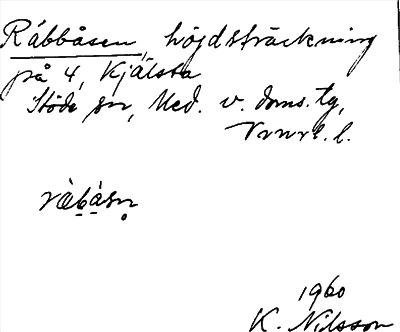 Råbbåsen, höjdsträckning
på 4, Kjälsta
Stöde sn, Med. v. doms. tg,
Vrnrl. l.
råbåsn
1960
K. Nilsson